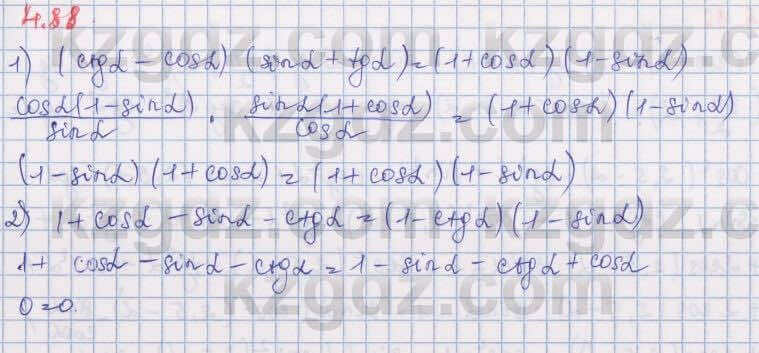 4.88
1) (ctgα - cosα) (sinα + tgα) = (1 + cosα) (1 - sinα)
cosα(1 - sinα)/sinα · sinα(1 + cosα)/cosα = (1 + cosα) (1 - sinα)
(1 - sinα) (1 + cosα) = (1 + cosα) (1 - sinα)
2) 1 + cosα - sinα - ctgα = (1 - ctgα) (1 - sinα)
1 + cosα - sinα - ctgα = 1 - sinα - ctgα + cosα
0 = 0.
kzgdz.com